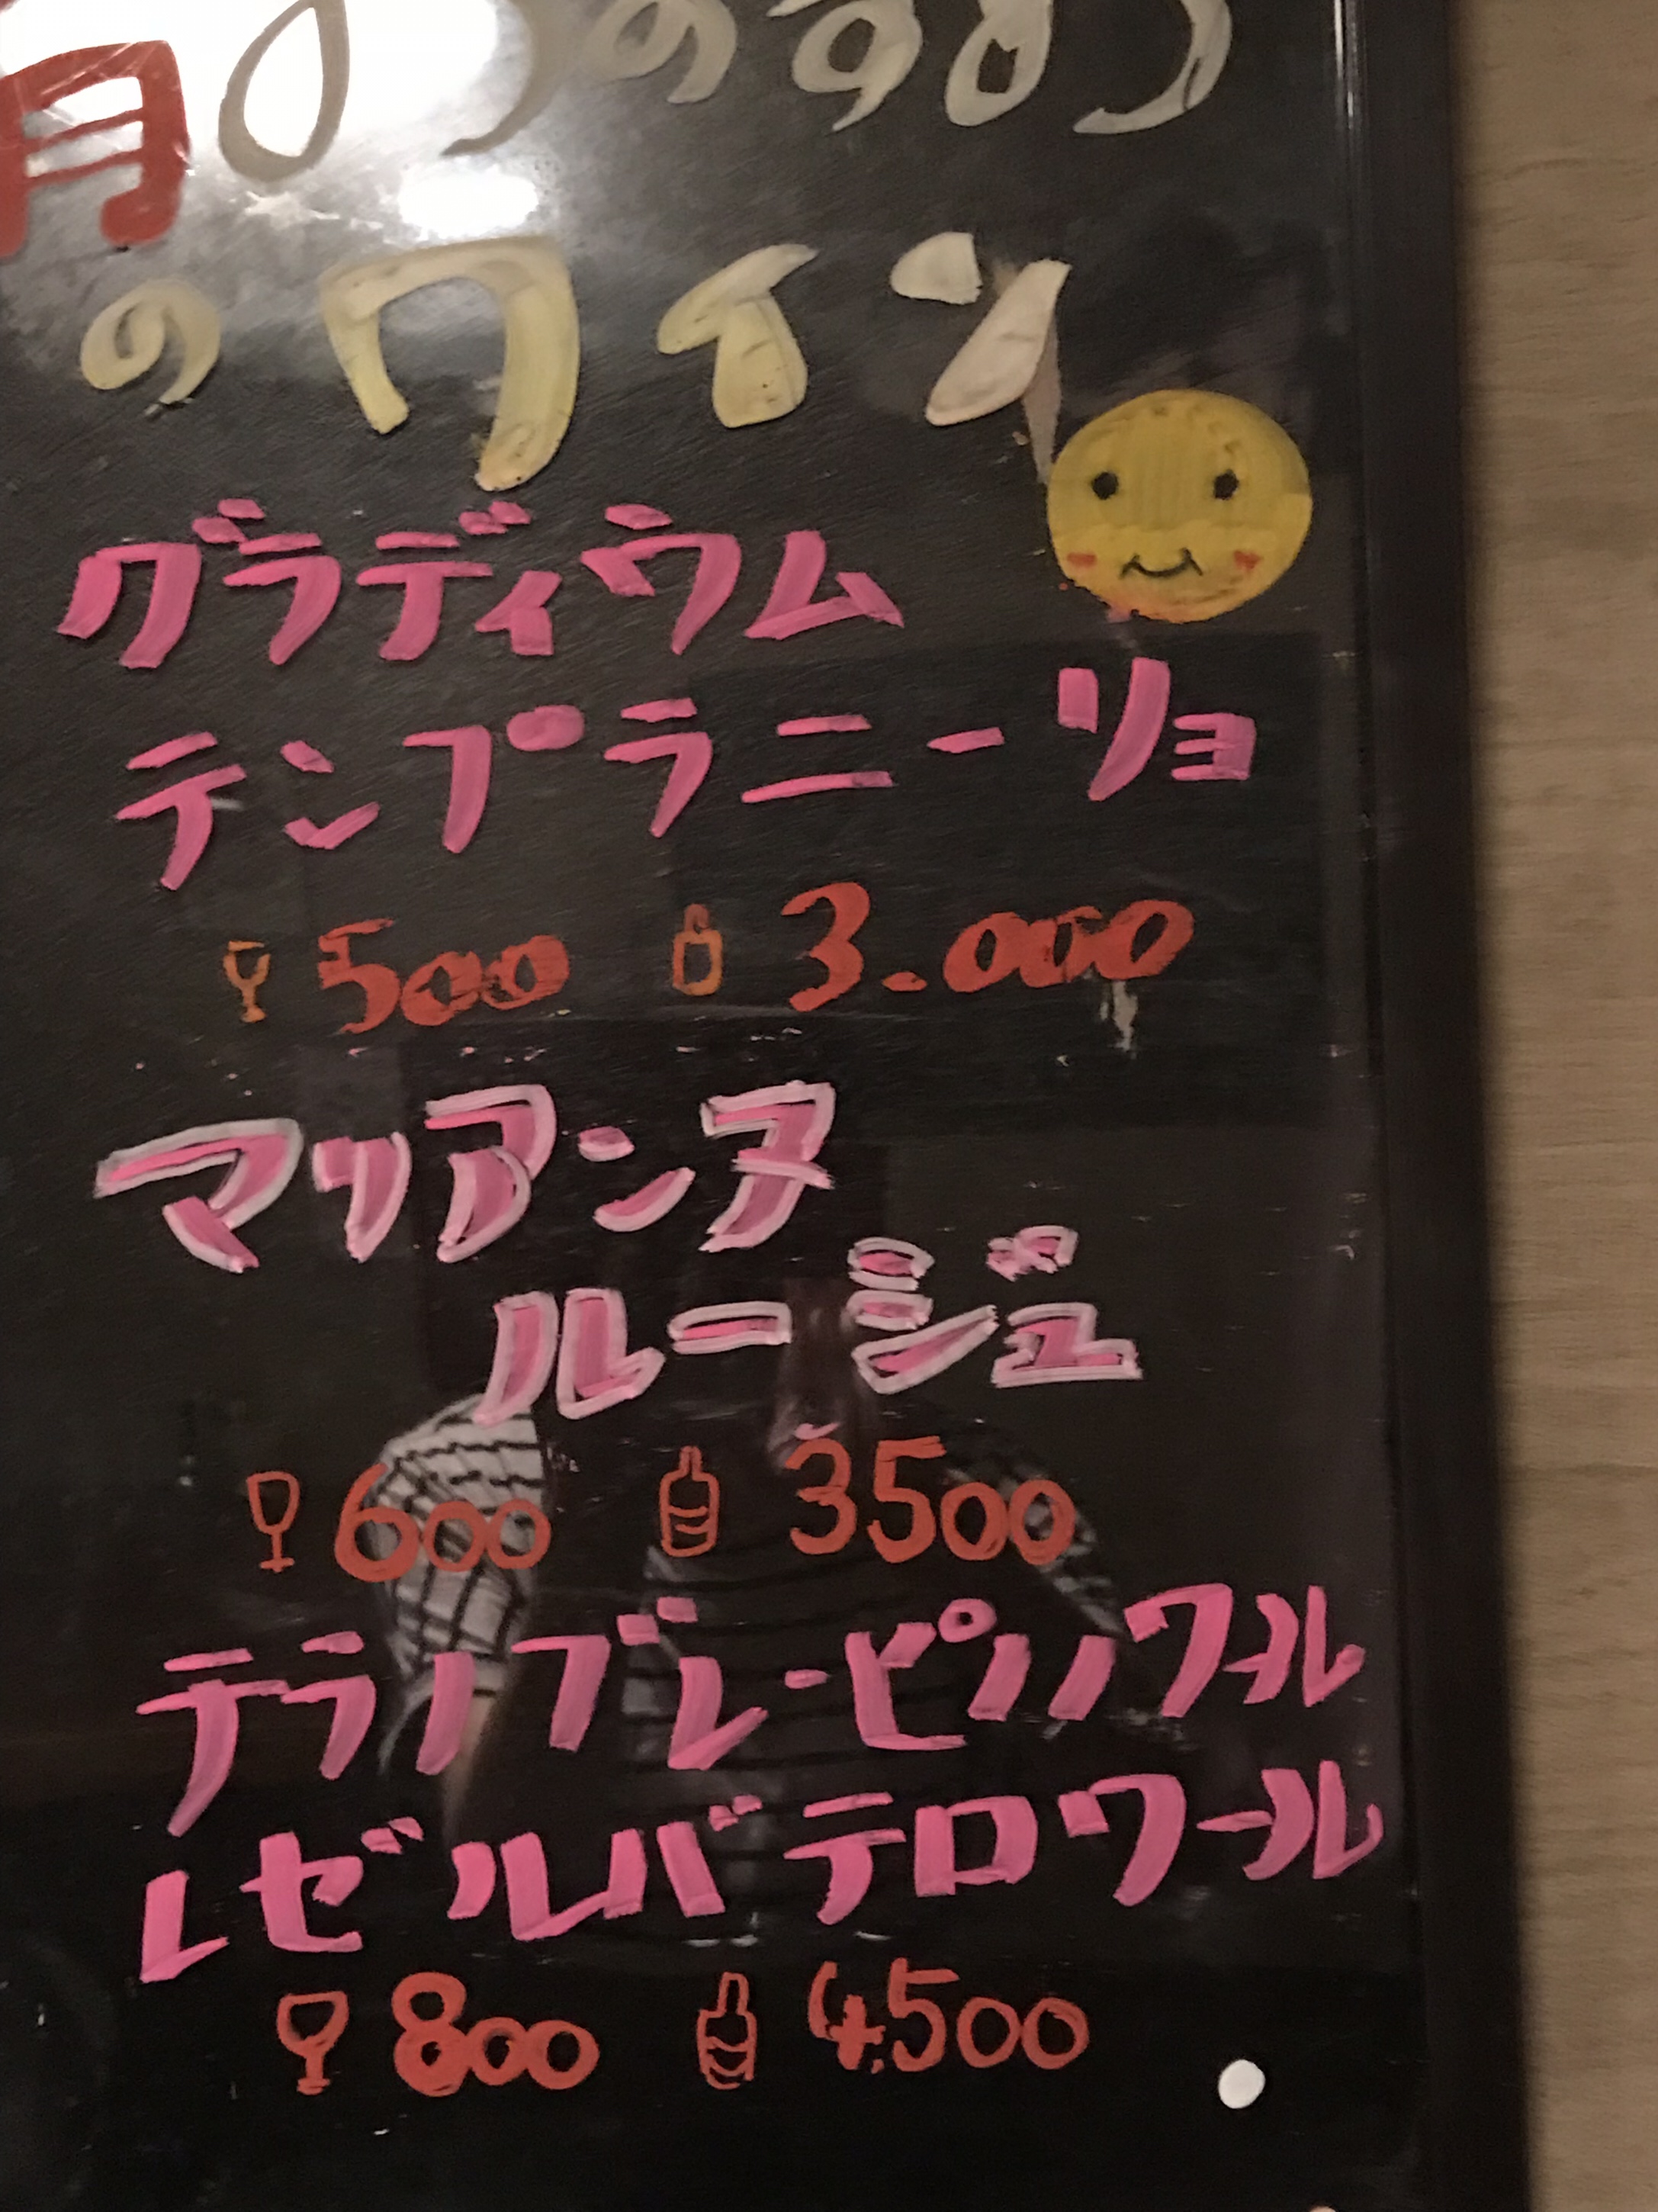 月のおすすめ
のワイン
グラディウム
テンプラニーリョ
500 3.000
マリアンヌ
ルージュ
600 3500
テラノブレーピノノワール
レゼルバテロワール
800 4.500